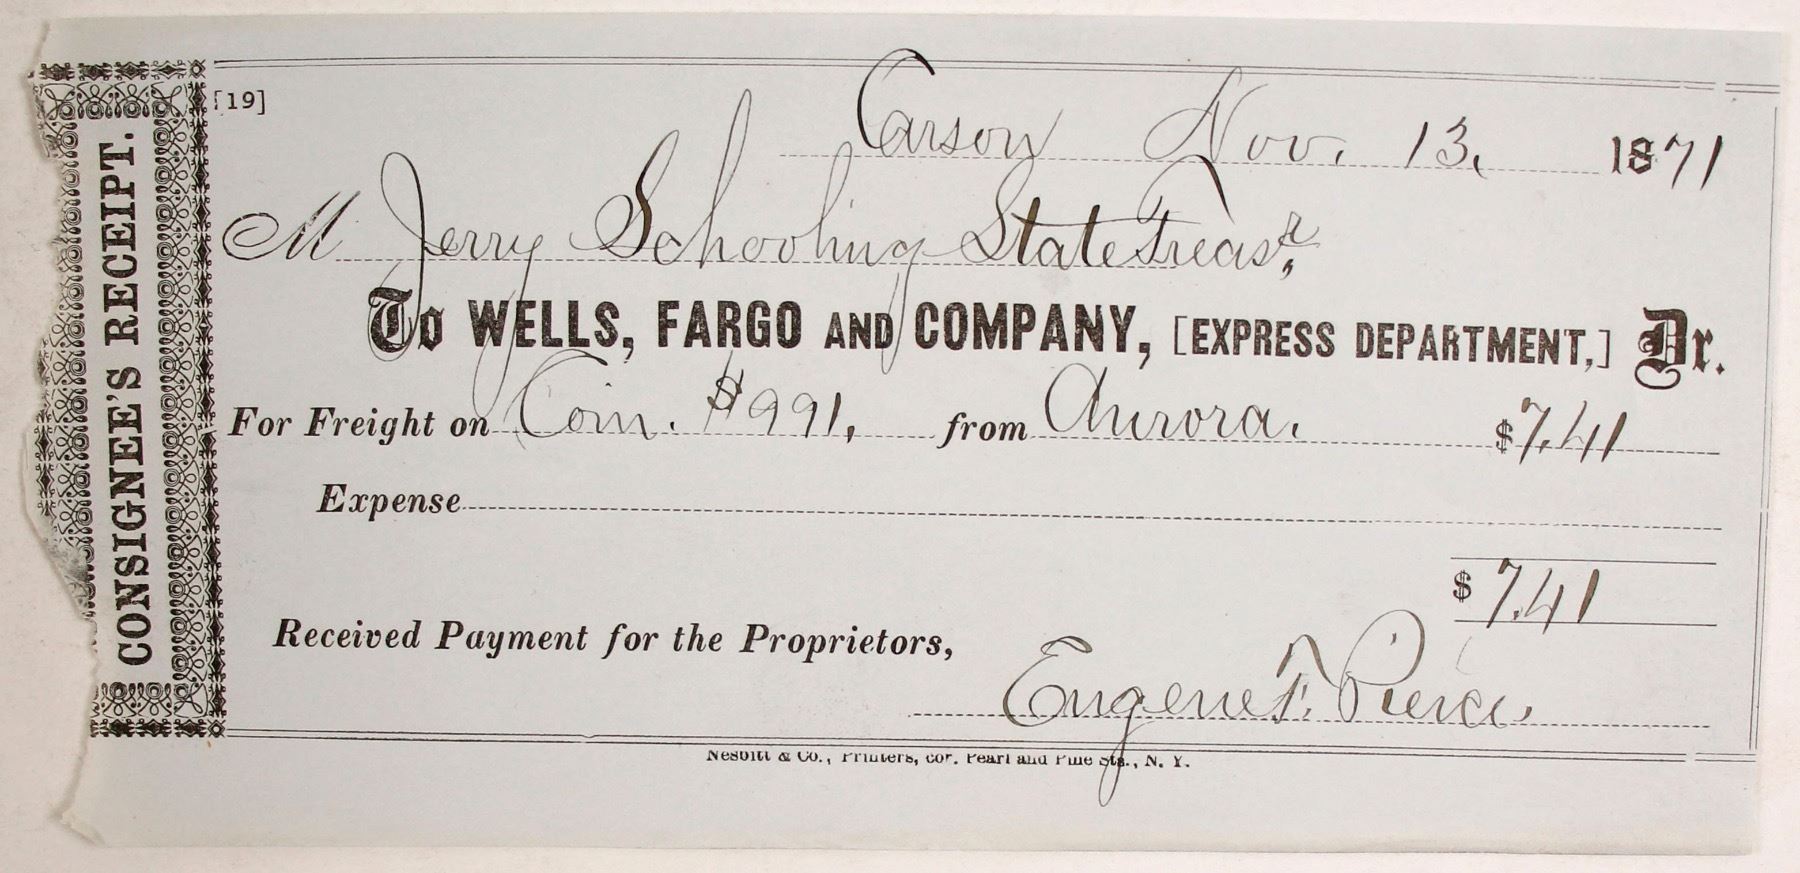 CONSIGNEE'S RECEIPT.
[19]
Carson Nov. 13, 1871
M Jerry Schooling State Treasr,
To WELLS, FARGO AND COMPANY, [EXPRESS DEPARTMENT,] Dr.
For Freight on Coin. $991, from Aurora. $7.41
Expense
$7.41
Received Payment for the Proprietors,
Eugene F. Pierce.
Nesbitt & Co., Printers, cor. Pearl and Pine Sts., N. Y.